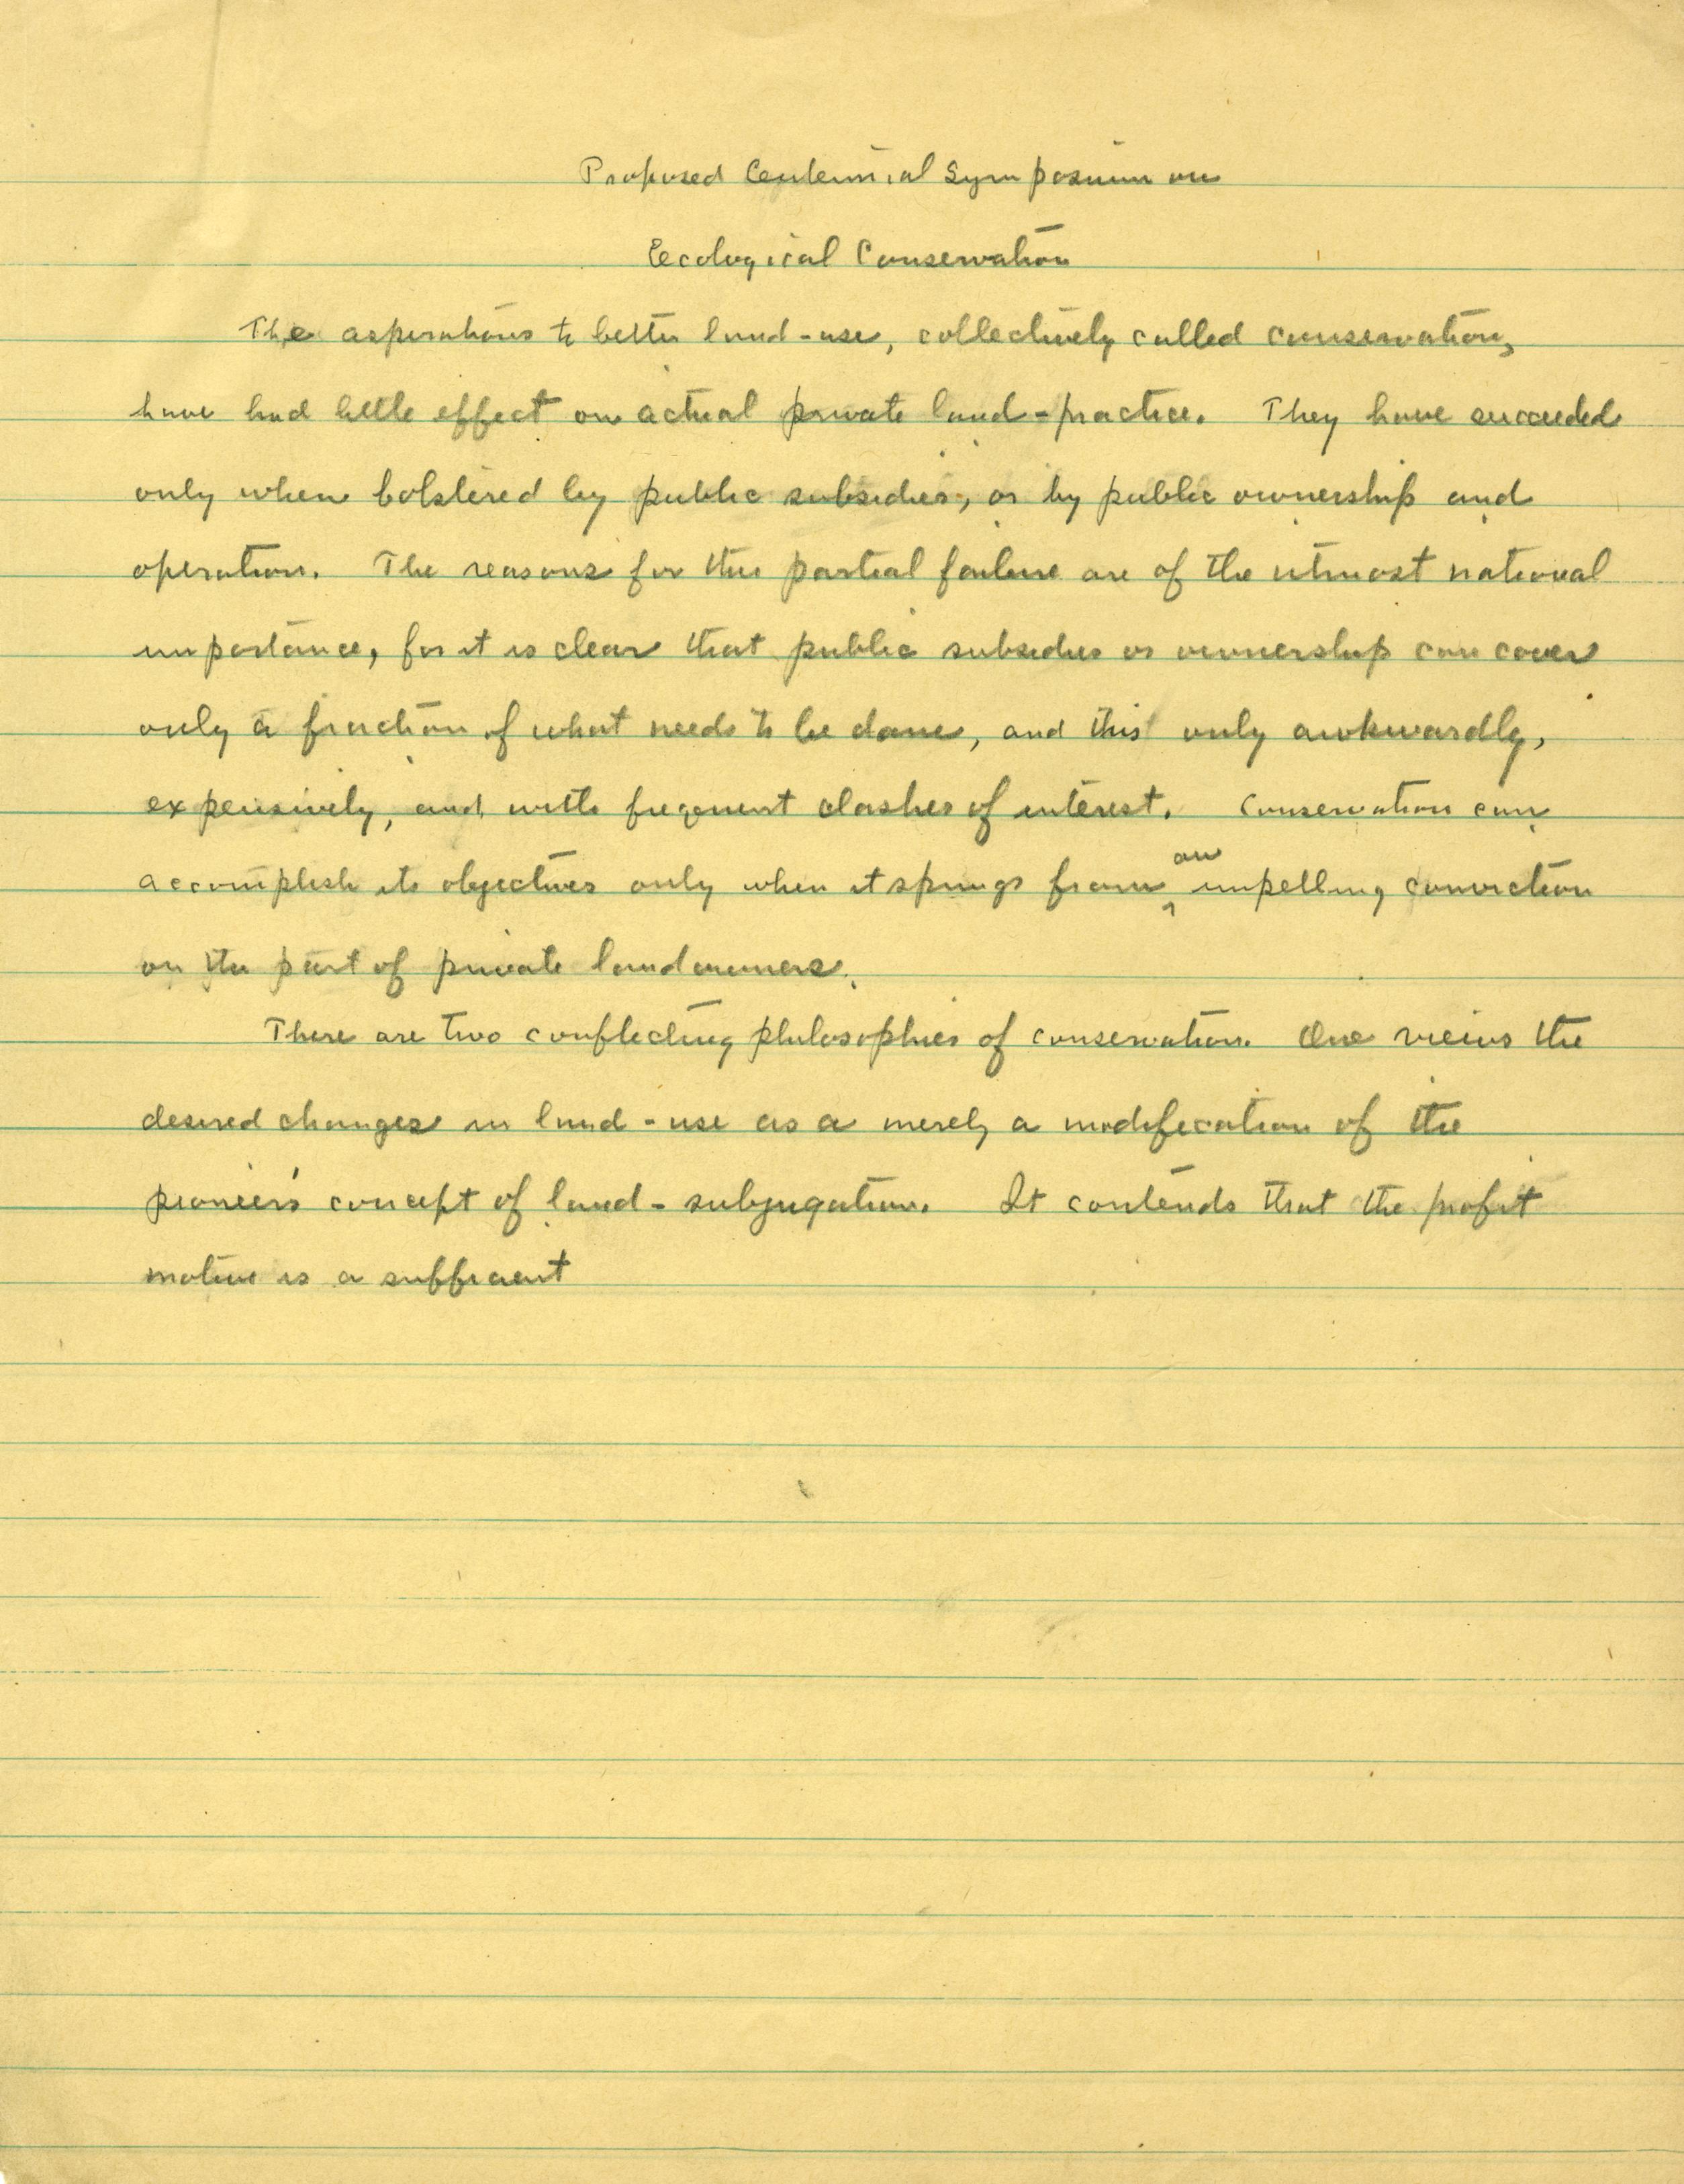 Proposed Centennial Symposium on
Ecological Conservation
The aspirations to better land-use, collectively called conservation,
have had little effect on actual private land-practice. They have succeeded
only when bolstered by public subsidies, or by public ownership and
operation. The reasons for this partial failure are of the utmost national
importance, for it is clear that public subsidies or ownership can cover
only a fraction of what needs to be done, and this only awkwardly,
expensively, and with frequent clashes of interest. Conservation can
accomplish its objectives only when it springs from an impelling conviction
on the part of private landowners.
There are two conflicting philosophies of conservation. One views the
desired changes in land-use as a merely a modification of the
pioneer's concept of land-subjugation. It contends that the profit
motive is a sufficient